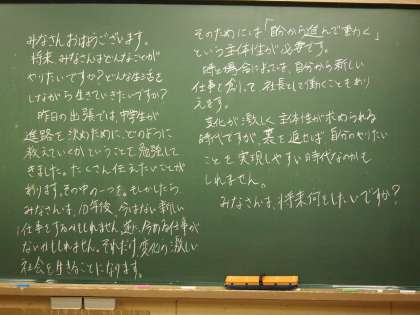 みなさんおはようございます。
将来みなさんはどんなことが
やりたいですか？どんな生活を
しながら生きていきたいですか？
昨日の出張では、中学生が
進路を決めるために、どのように
教えていくかということを勉強して
きました。たくさん伝えたいことが
あります。その中の一つを。もしかしたら、
みなさんは、10年後、今はない新しい
仕事をするかもしれません。逆に、今ある仕事が
ないかもしれません。それだけ、変化の激しい
社会を生きることになります。
そのためには「自分から進んで動く」
という主体性が必要です。
時と場合によっては、自分から新しい
仕事を創って社長として働くこともあり
えます。
変化が激しく主体性が求められる
時代ですが、裏を返せば、自分のやりたい
ことを実現しやすい時代なのかも
しれません。
みなさんは、将来何をしたいですか？